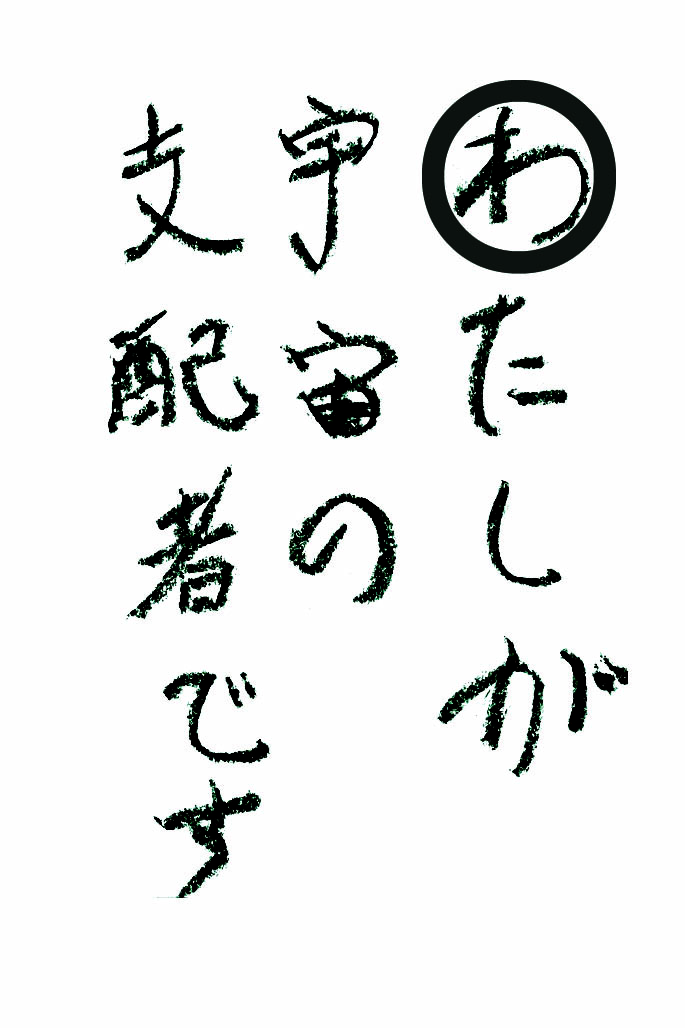 わたしが
宇宙の
支配者です